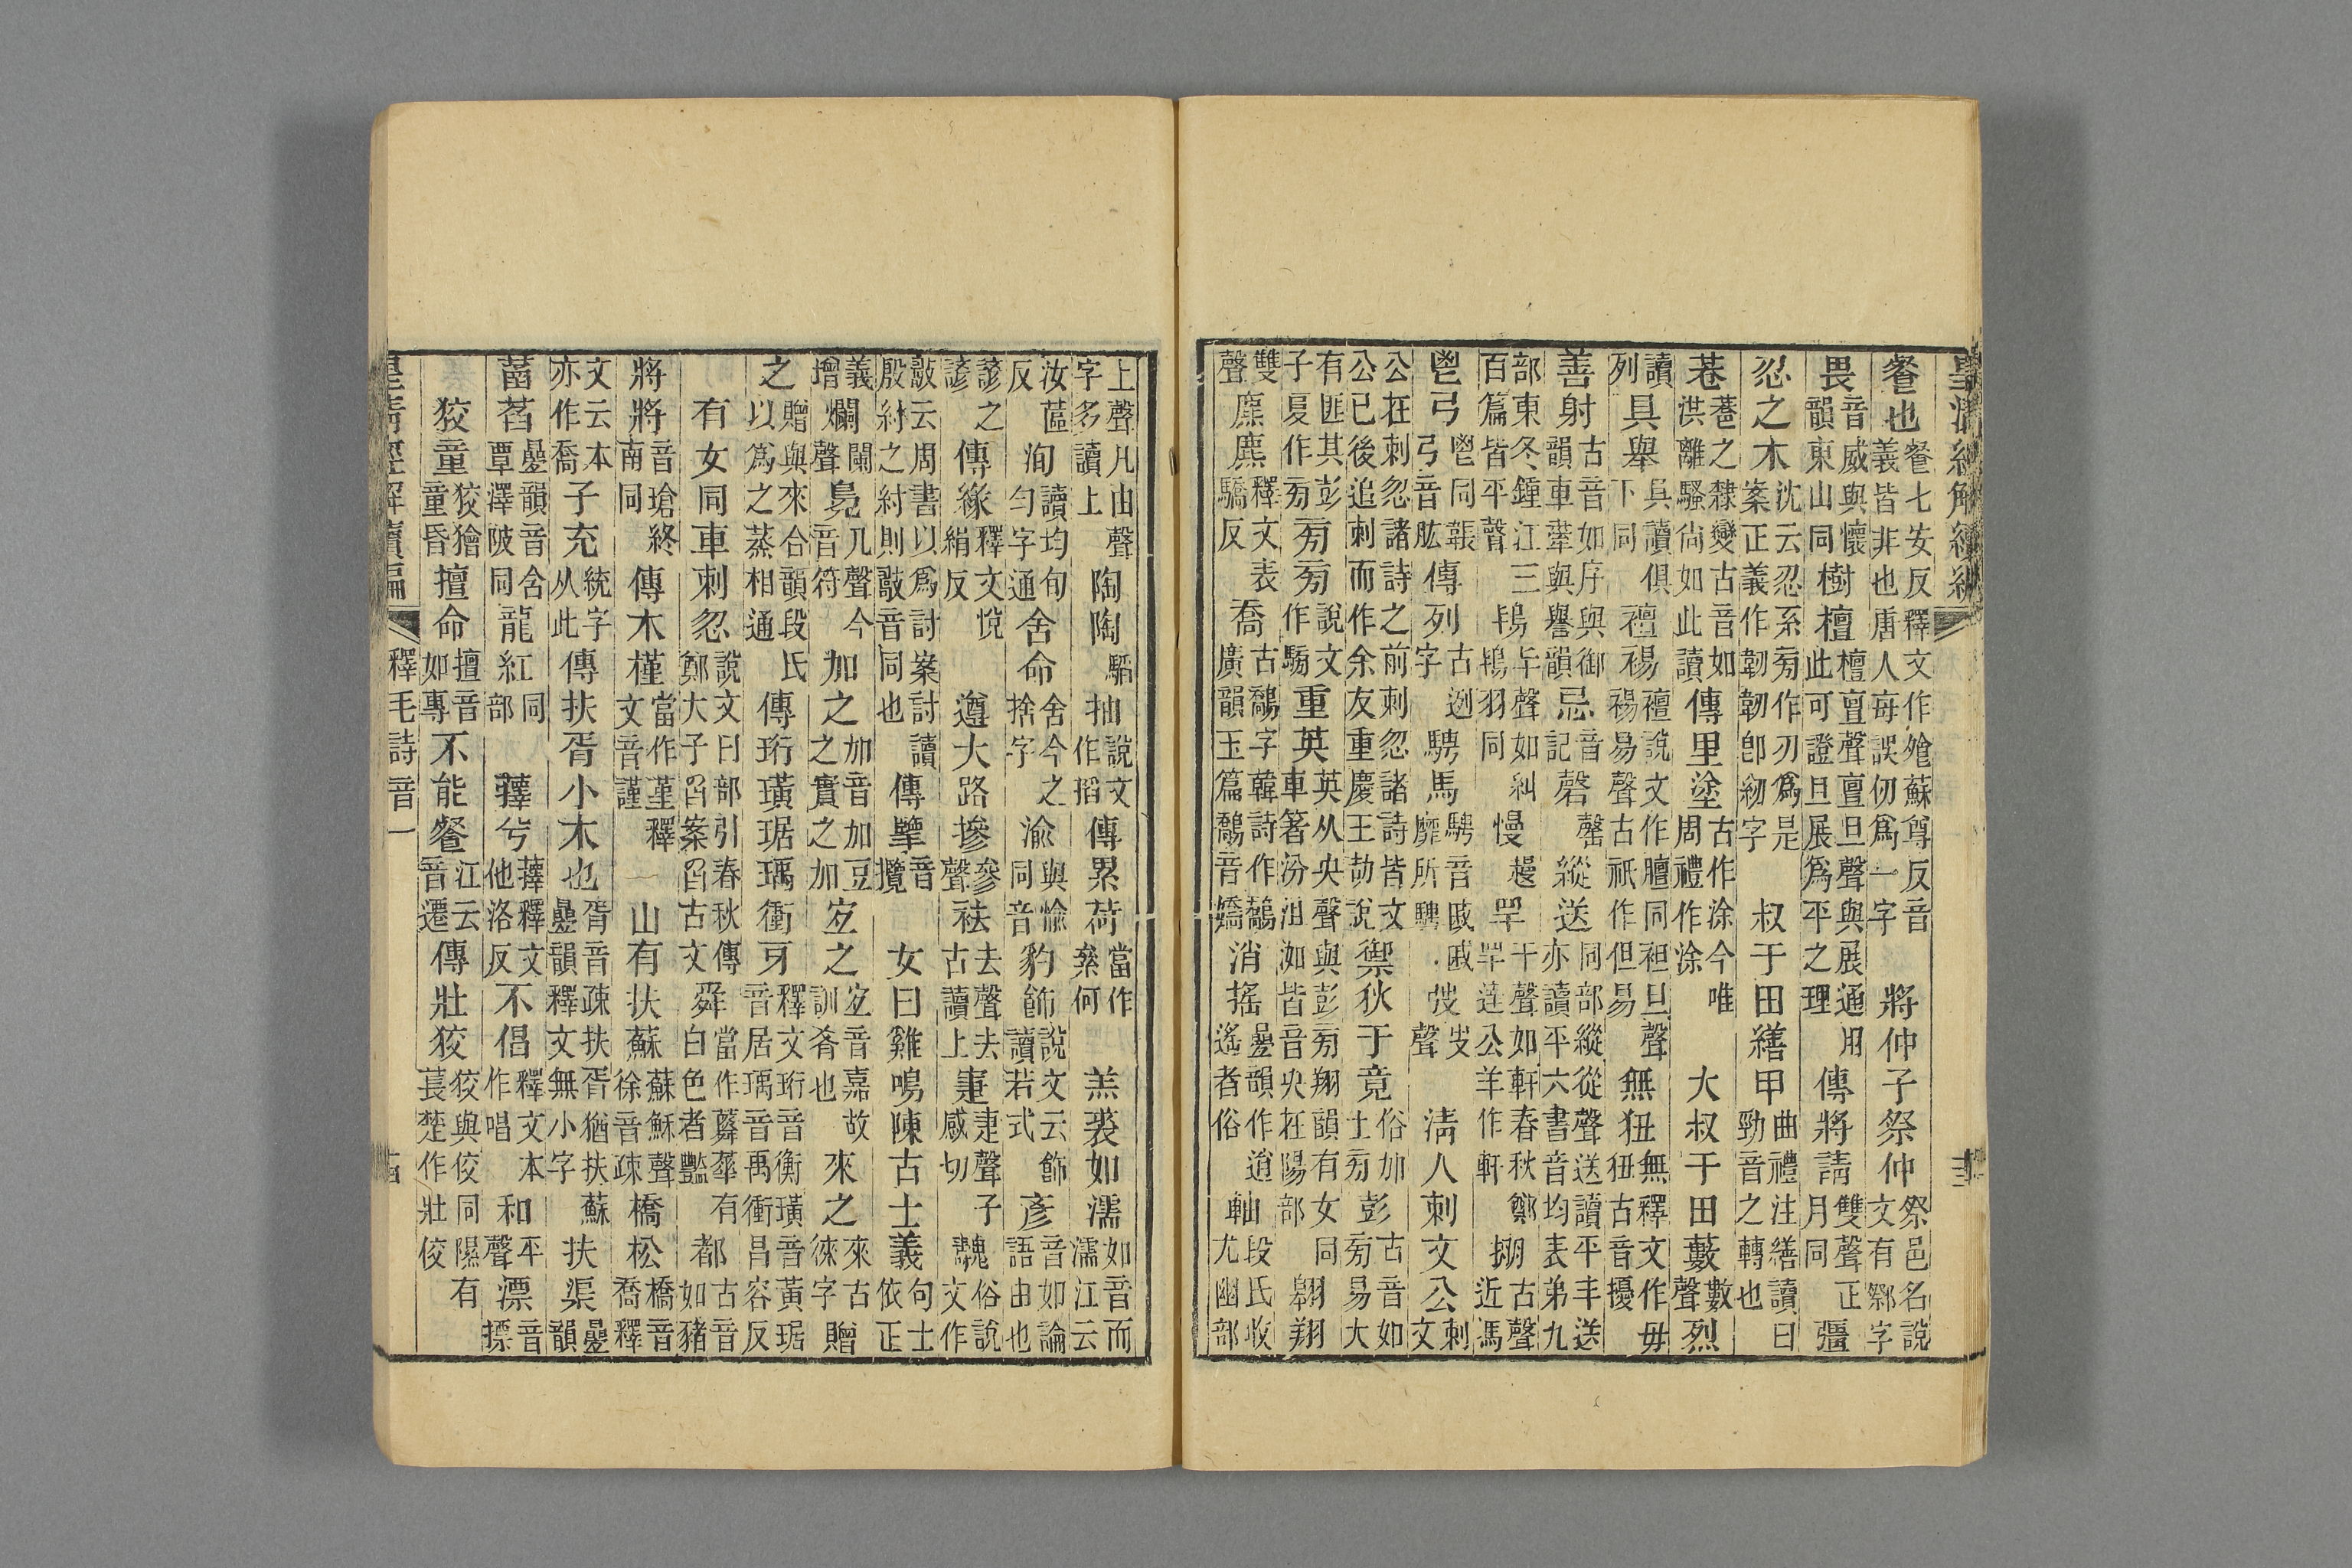 皇清經解續編
餐也餐七安反釋文作飱蘇尊反音義皆非也唐人每誤仞爲一字　將仲子祭仲祭邑名說文有鄒字
畏音威與懷韻東山同樹檀此檀亶聲亶旦聲與展通用可證旦展爲平之理傳將請雙聲正月同彊
忍之木沈云忍系旁作刃爲是案正義作韌韌卽紉字　叔于田繕甲曲禮注繕讀曰勁音之轉也
巷巷之隸變古音如洪離騷尙如此讀傳里塗古作涂今唯周禮作涂　大叔于田藪數聲烈
讀列具舉具讀俱下同襢裼襢說文作膻同袒旦聲裼易聲古祇作但易無狃狃無釋文作毋古音擾
善射古音如序與御韻車舝與譽韻忌音記磬罄縱送同部縱從聲送讀平丰送亦讀平六書音均表弟九
部東冬鍾江三百篇皆平聲鴇𠤏聲如糾鴇羽同慢嫚罕干聲如軒春秋鄭罕達公羊作軒掤古聲近馮
鬯弓鬯同韔弓音肱傳列古迾字騁馬騁音戚戚靡所騁弢𠬢聲　清人刺文公刺文
公在刺忽諸詩之前刺忽諸詩皆文公已後追刺而作余友重慶王劼說禦狄于竟俗加土旁彭古音如旁易大
有匪其彭子夏作旁旁旁說文作騯重英英从央聲與彭旁翔韻有女同車箸汾沮洳皆音央在陽部翱翔
雙聲麃麃釋文表驕反喬古鷮字韓詩作鷮廣韻玉篇鷮音嬌消搖疊韻作逍遙者俗軸段氏收尤幽部
上聲凡由聲字多讀上陶陶騊抽說文作搯傳累荷當作絫何　羔裘如濡如音而濡江云
汝蓲反洵讀均旬勻字通舍命舍今之捨字渝與愉同音豹飾說文云飾讀若式彥音如論語由也
諺之諺傳緣釋文悅絹反　遵大路摻參聲袪去聲去古讀上寁疌聲子感切魗俗說文作
㪣云周書以爲討殷紂之紂則㪣音同也案討讀傳擥音攬　女曰雞鳴陳古士義句士依正
義爛闌聲增鳧几聲今音符加之加音加豆之實之加宜之宜音嘉故訓肴也來之來古徠字贈
之贈與來合韻段氏以爲之蒸相通傳珩璜琚瑀衝牙釋文珩音衡璜音黃琚音居瑀音禹衝昌容反
　有女同車刺忽說文曰部引春秋傳鄭大子曶案曶古文舜當作蕣蕣有白色者豔都古音如豬
將將音瑲終南同傳木槿當作堇釋文音謹　山有扶蘇蘇穌聲徐音疎橋松橋音喬釋
文云本亦作喬子充統字从此傳扶胥小木也胥音疎扶胥猶扶蘇疊韻釋文無小字扶渠疊韻
菡萏疊韻音含覃澤陂同龍紅同部　蘀兮蘀釋文他洛反不倡釋文本作唱和平聲漂音摽
　狡童狡獪童昏擅命擅音如專不能餐江云音遷傳壯狡狡與佼同隰有萇楚作壯佼
皇清經解續編　釋毛詩音一